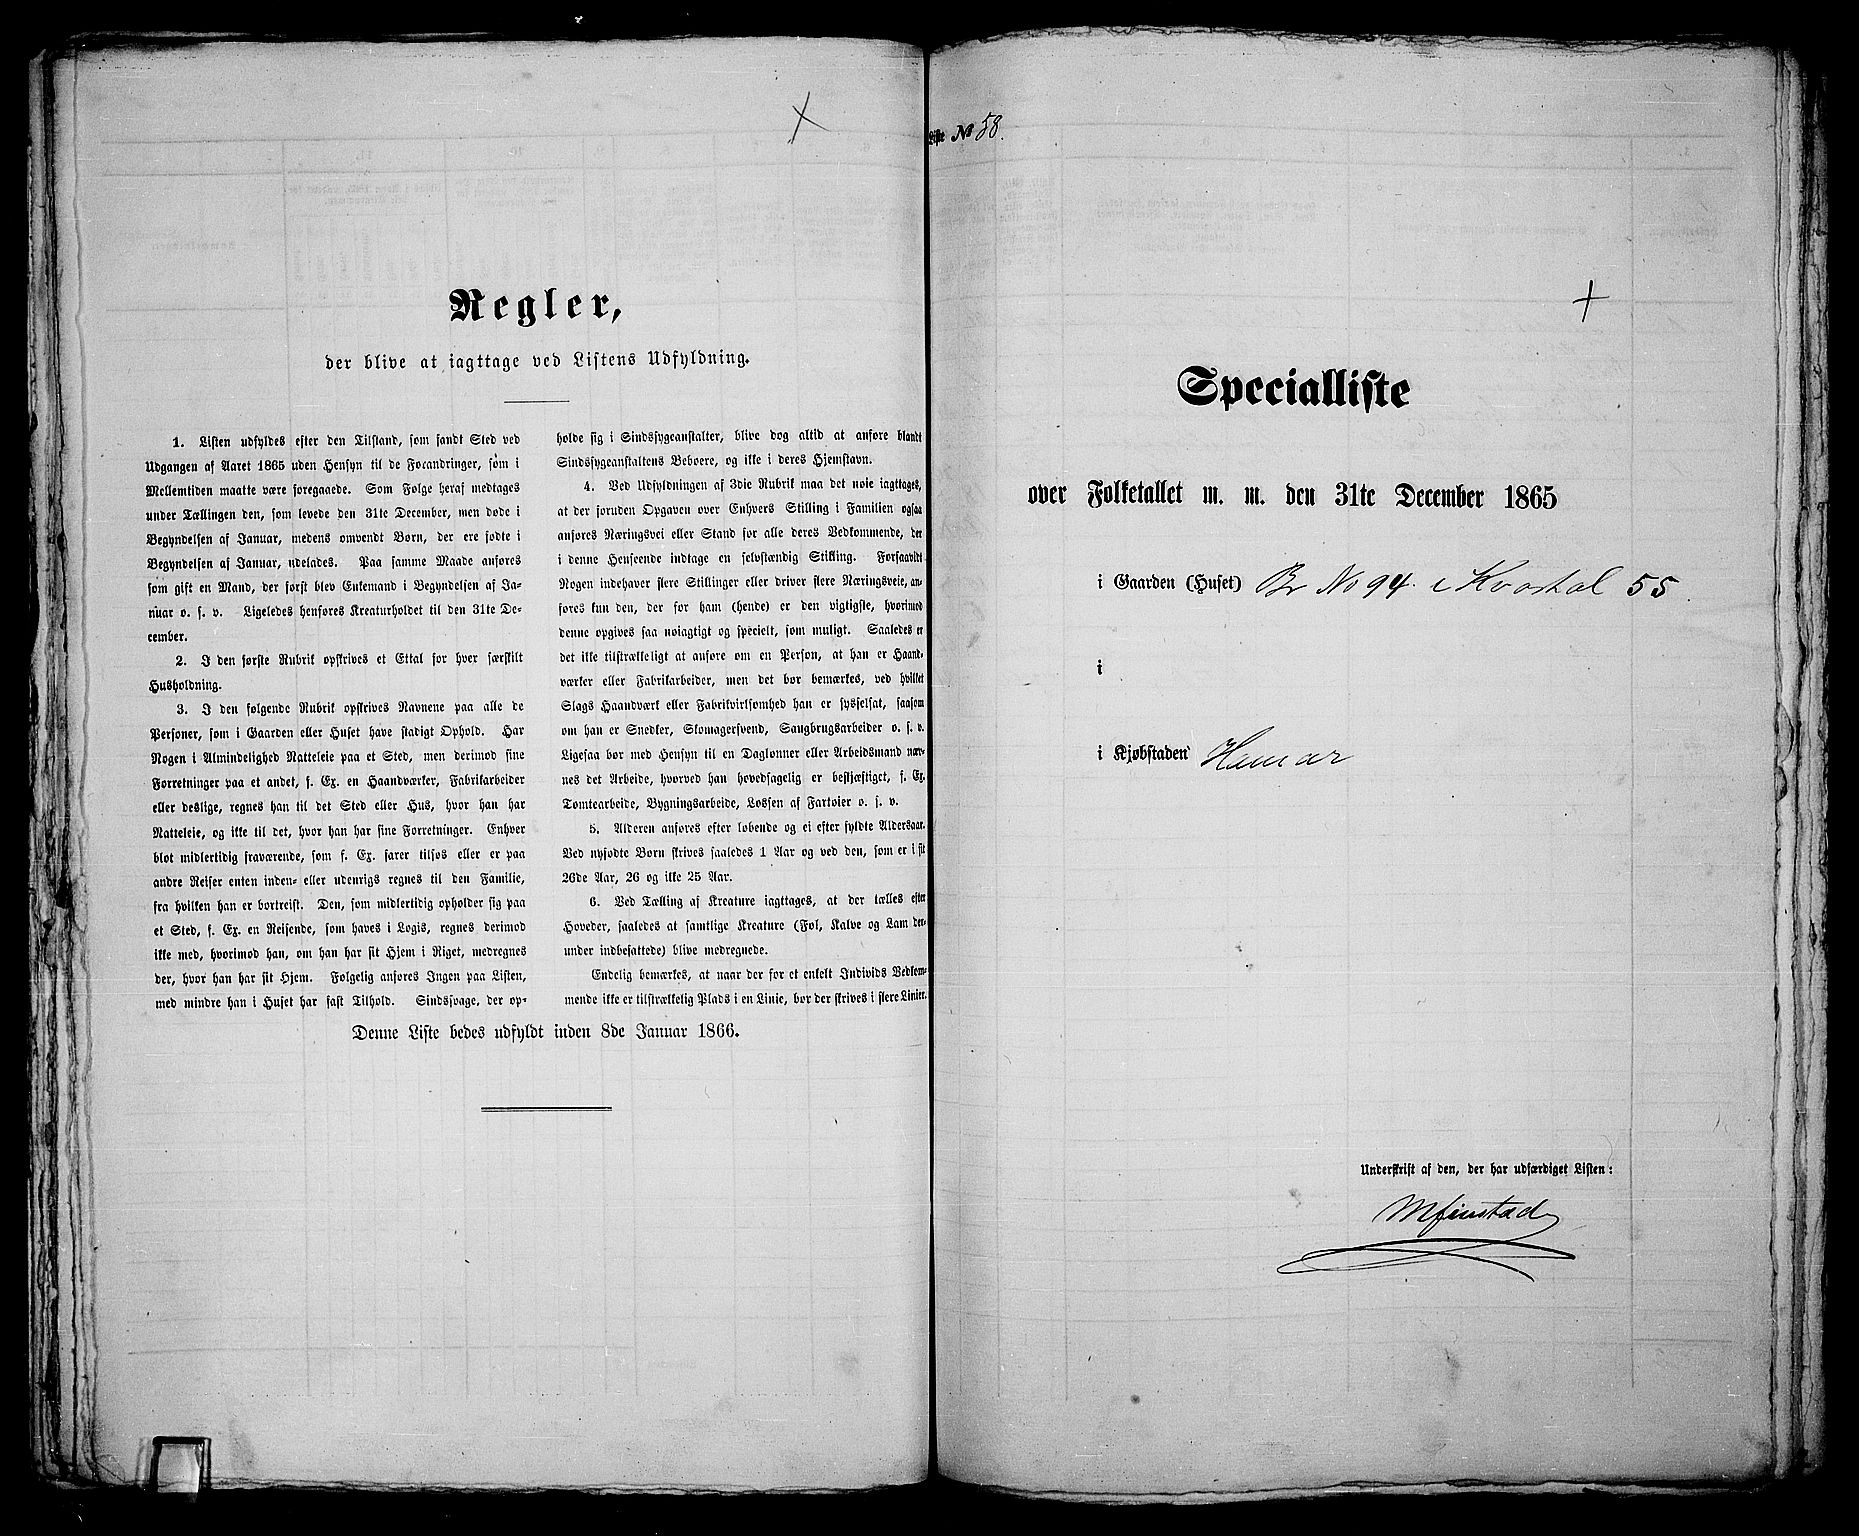 Regler,
der blive at iagttage ved Listens Udfyldning.
1. Listen udfyldes efter den Tilstand, som fandt Sted ved
Udgangen af Aaret 1865 uden Hensyn til de Forandringer, som i
Mellemtiden maatte være foregaaede. Som Følge heraf medtages
under Tællingen den, som levede den 31te December, men døde i
Begyndelsen af Januar, medens omvendt Børn, der ere fødte i
Begyndelsen af Januar, udelades. Paa samme Maade anføres
som gift en Mand, der først blev Enkemand i Begyndelsen af Ja-
nuar o. s. v. Ligeledes henføres Kreaturholdet til den 31te De-
cember.
2. I den første Rubrik opskrives et Ettal for hver særskilt
Husholdning.
3. I den følgende Rubrik opskrives Navnene paa alle de
Personer, som i Gaarden eller Huset have stadigt Ophold. Har
Nogen i Almindelighed Natteleie paa et Sted, men derimod sine
Forretninger paa et andet, f. Ex. en Haandværker, Fabrikarbeider
eller deslige, regnes han til det Sted eller Hus, hvor han har
Natteleie, og ikke til det, hvor han har sine Forretninger. Enhver
blot midlertidig fraværende, som f. Ex. farer tilsøs eller er paa
andre Reiser enten inden- eller udenrigs regnes til den Familie,
fra hvilken han er bortreist. Den, som midlertidig opholder sig paa
et Sted, f. Ex. en Reisende, som haves i Logis, regnes derimod
ikke med, hvorimod han, om han har sit Hjem i Riget, medregnes
der, hvor han har sit Hjem. Følgelig anføres Ingen paa Listen,
med mindre han i Huset har fast Tilhold. Sindssvage, der op-
holde sig i Sindssygeanstalter, blive dog altid at anføre blandt
Sindssygeanstaltens Beboere, og ikke i deres Hjemstavn.
4. Ved Udfyldningen af 3die Rubrik maa det nøie iagttages,
at der foruden Opgaven over Enhvers Stilling i Familien ogsaa
anføres Næringsvei eller Stand for alle deres Vedkommende, der
i denne Henseende indtage en selvstændig Stilling. Forsaavidt
Nogen indehaver flere Stillinger eller driver flere Næringsveie, an-
føres kun den, der for ham (hende) er den vigtigste, hvorimod
denne opgives saa nøiagtigt og specielt, som muligt. Saaledes er
det ikke tilstrækkeligt at anføre om en Person, at han er Haand-
værker eller Fabrikarbeider, men det bør bemærkes, ved hvilket
Slags Haandværk eller Fabrikvirksomhed han er sysselsat, saasom
om han er Snedker, Skomagersvend, Saugbrugsarbeider o. s. v.
Ligesaa bør med Hensyn til en Dagløner eller Arbeidsmand næv-
nes det Arbeide, hvorved han hovedsagelig er beskjæftiget, f. Ex.
Tomtearbeide, Bygningsarbeide, Lossen af Fartøier o. s. v.
5. Alderen anføres efter løbende og ei efter fyldte Aldersaar.
Ved nyfødte Børn skrives saaledes 1 Aar og ved den, som er i sit
26de Aar, 26 og ikke 25 Aar.
6. Ved Tælling af Kreature iagttages, at der tælles efter
Hoveder, saaledes at samtlige Kreature (Føl, Kalve og Lam der-
under indbefattede) blive medregnede.
Endelig bemærkes, at naar der for et enkelt Individs Vedkom-
mende ikke er tilstrækkelig Plads i en Linie, bør der skrives i flere Linier.
Denne Liste bedes udfyldt inden 8de Januar 1866.
Liste No 58.
Specialliste
over Folketallet m. m. den 31te December 1865
i Gaarden (Huset) Br No 94. i Kvartal 55.
i
i Kjøbstaden Hamar
Underskrift af den, der har udfærdiget Listen: